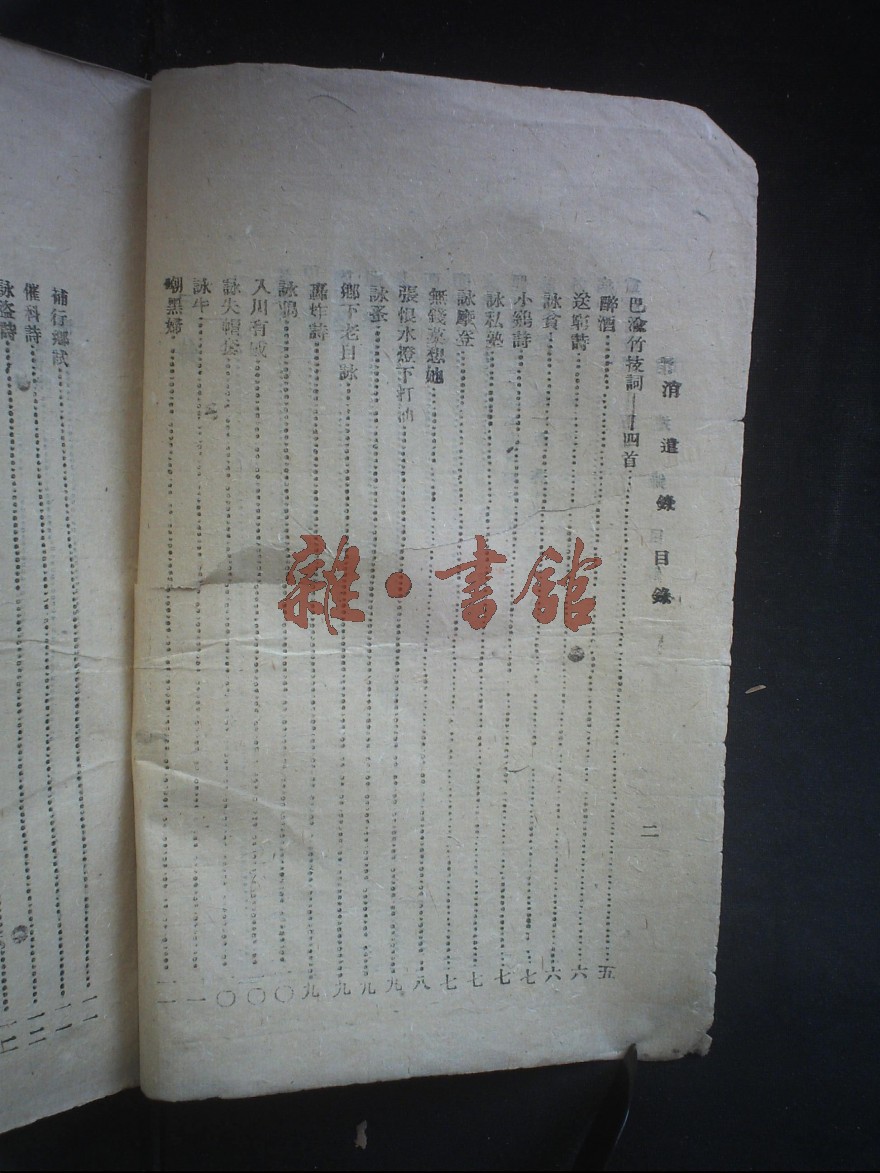 消遣錄目錄
二
巴渝竹枝詞——十四首……五
醉酒……六
送窮詩……六
詠貧……六
小鷄詩……七
詠私塾……七
詠摩登……七
無錢莫想她……八
張恨水燈下打油……九
詠蚤……九
鄉下老自詠……九
轟炸詩……九
詠鴉……一〇
入川有感……一〇
詠失帽……一〇
詠牛……一一
嘲黑婦……一一
補行鄉試……一一
催科詩……一二
詠盜詩……一二
雜·書館